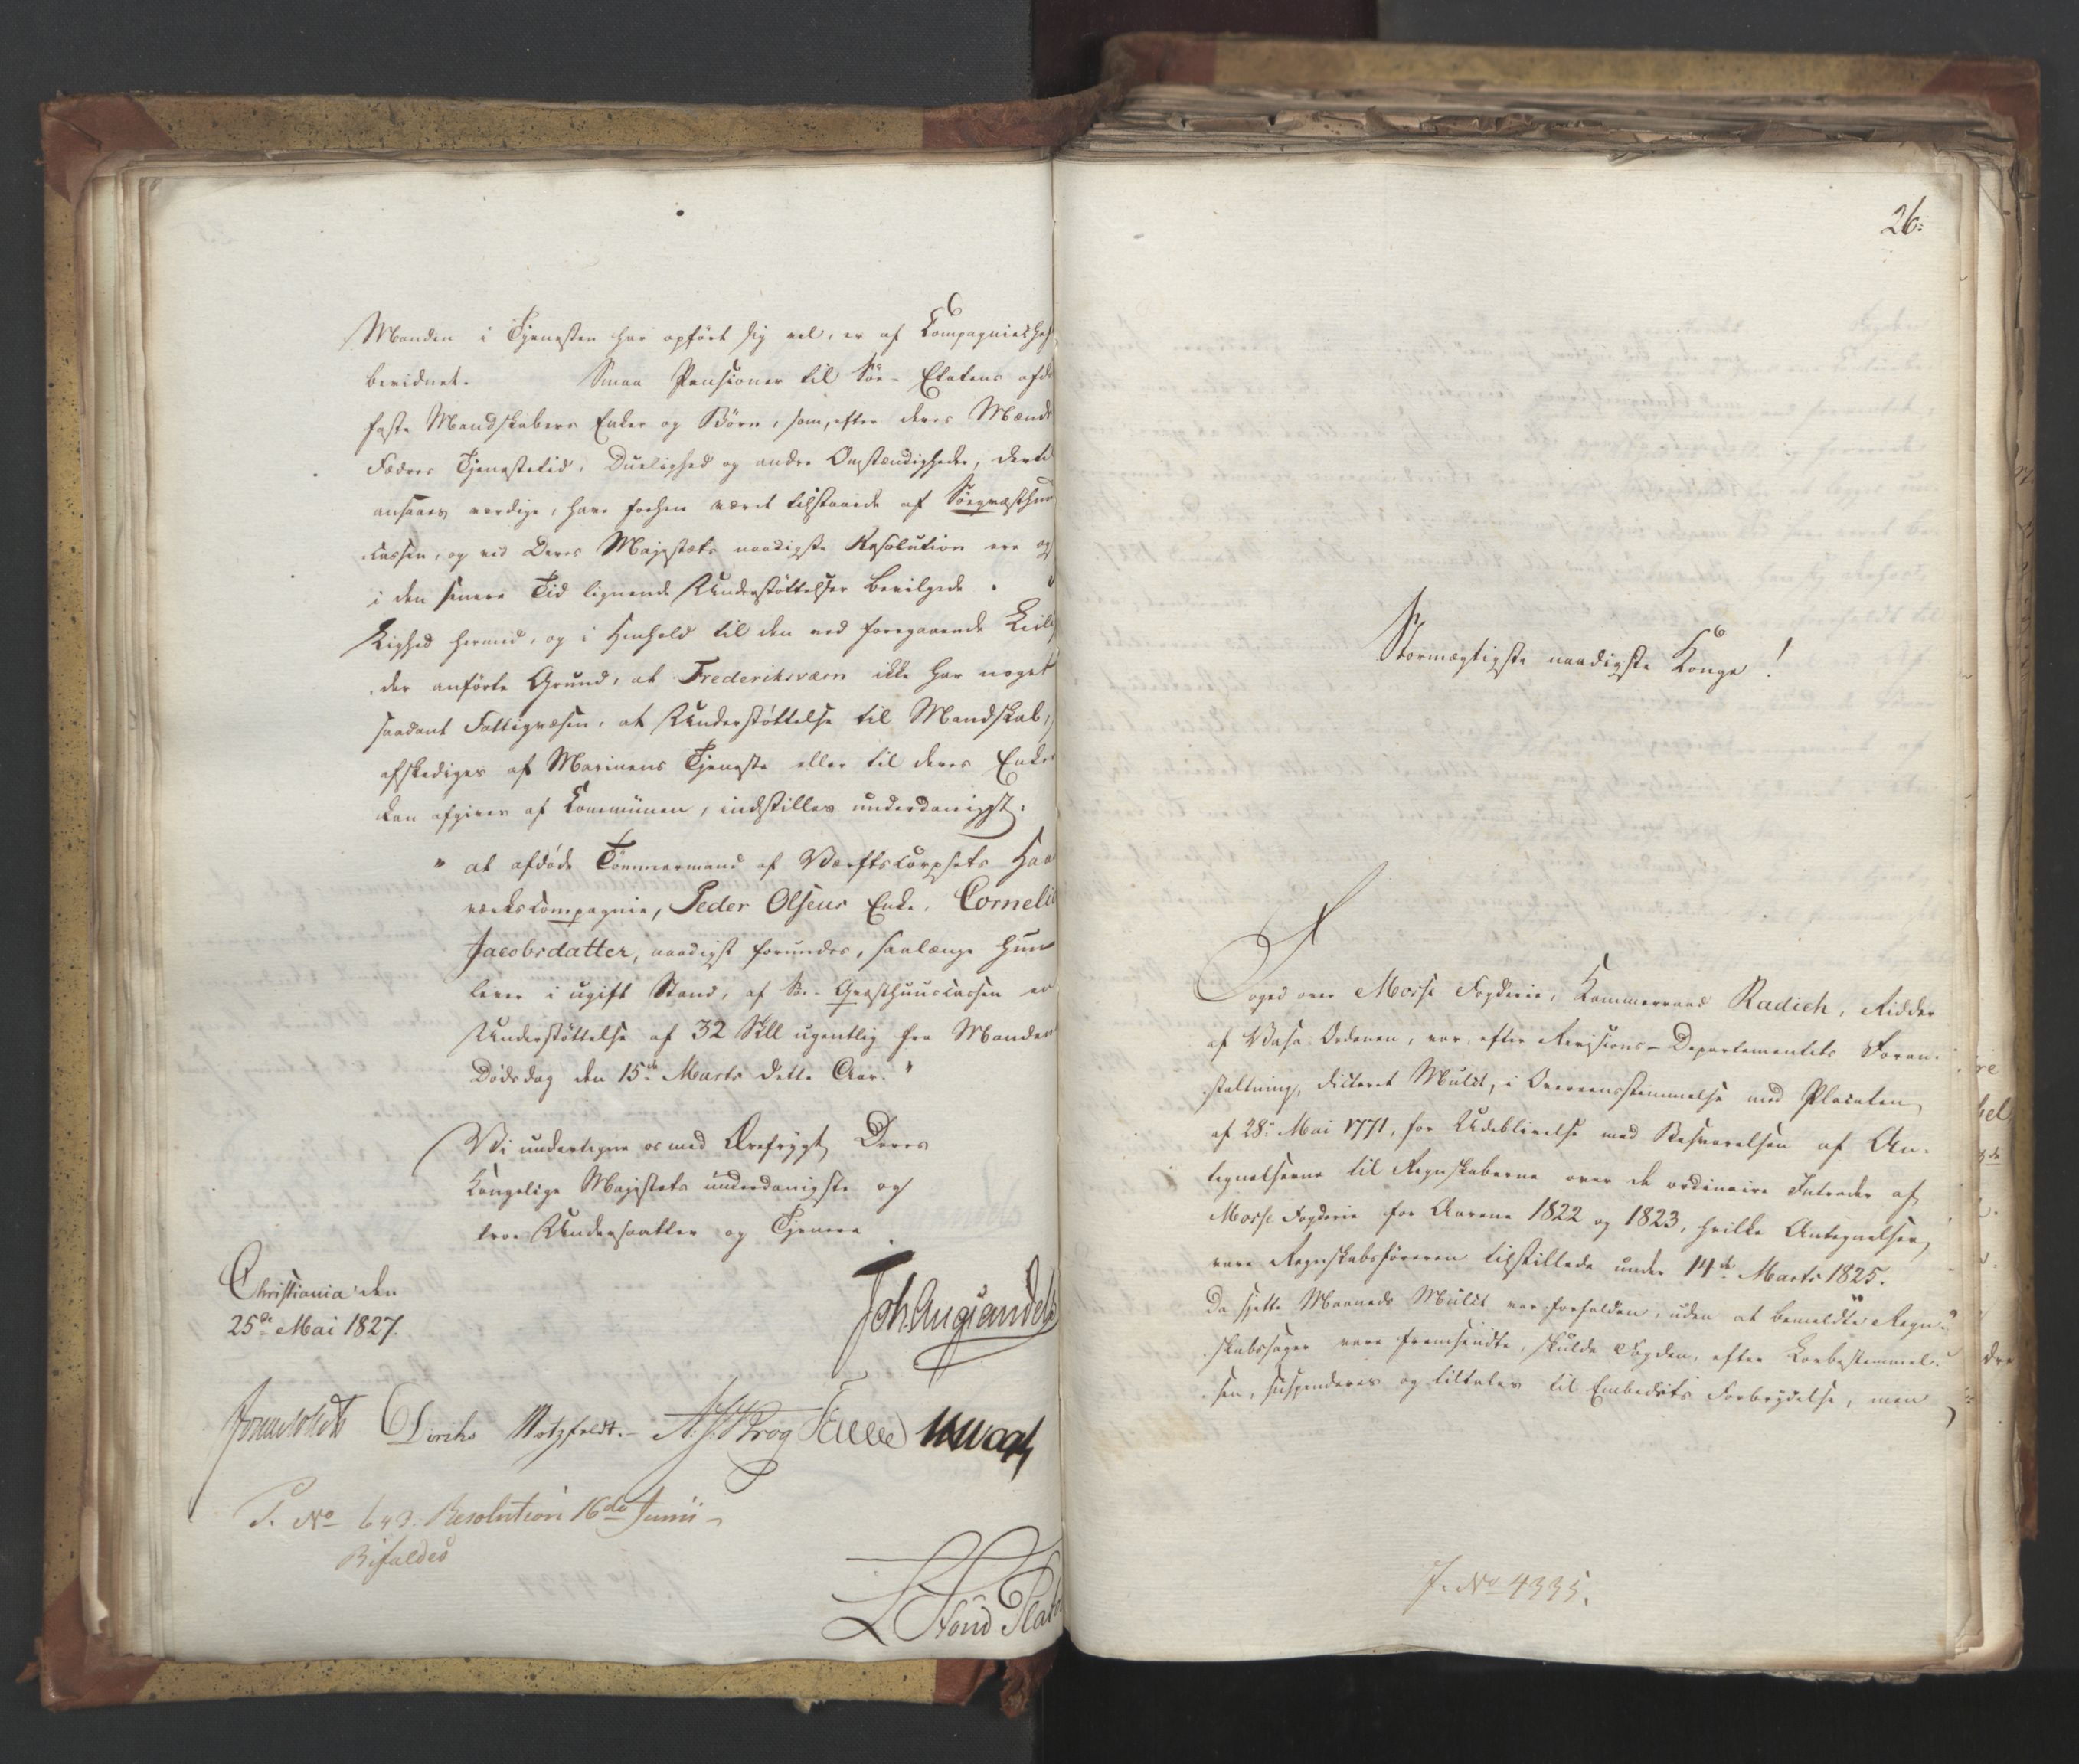 Manden i Tjenesten har opført sig vel, er af Compagniechef
bevidnet. Smaa Pensioner til Søe-Etatens afd
faste Mandskabers Enker og Børn, som, efter deres Mænds
Fædres Tjenestetid, Duelighed og andre Omstændigheder, dertil
ansaaes værdige, have forhen været tilstaaede af Søeqvæsthuus
cassen, og ved Deres Majestæts naadigste Resolution ere og
i den senere Tid lignende Understøttelser bevilgede.
Lighed hermed, og i Henhold til den ved foregaaende Leilig
der anførte Grund, at Frederiksværn ikke har noget
saadant Fattigvæsen, at Understøttelse til Mandskab,
afskediges af Marinens Tjeneste eller til deres Enker
kan afgives af Communen, indstilles underdanigst:
" at afdøde Tømmermand af Værftscorpsets Haand
værkscompagnie, Peder Olsens Enke, Cornelia
Jacobsdatter, naadigst forundes, saalænge hun
lever i ugift Stand, af Søe-Qvæsthuuscassen en
Understøttelse af 32 Skll ugentlig fra Mandens
Dødsdag den 15de Marts dette Aar. "
Vi undertegne os med Ærefrygt Deres
Kongelige Majestæts underdanigste og
troe Undersaatter og Tjenere
Christiania den
25de Mai 1827.
Diriks Motzfeldt. Krog
P. No 649. Resolution 16de Junii
Bifaldes
26.
Stormægtigste naadigste Konge!
Foged over Mosse Fogderie, Kammerraad Radich, Ridder
af Vasa-Ordenen, var, efter Revisions-Departementets Foran-
staltning, dicteret Mulct, i Overeensstemmelse med Placaten
af 28. Mai 1771, for Udeblivelse med Besvarelsen af An-
tegnelserne til Regnskaberne over de ordinaire Intrader af
Mosse Fogderie for Aarene 1822 og 1823, hvilke Antegnelser
vare Regnskabsføreren tilstillede under 14de Marts 1825.
Da sjette Maaneds Mulct var forfalden, uden at bemeldte Regn-
skabssager vare fremsendte, skulde Fogden, efter Lovbestemmel-
sen, suspenderes og tiltales til Embedets Forbrydelse, men
J. No 4335.